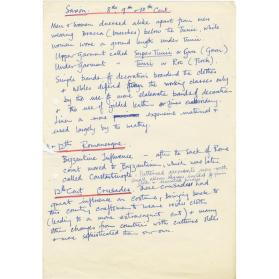 Saxon. 8th 9th - 10th Cent
Men + women dressed alike apart from men
wearing braccas (breeches) below the Tunic while
women wore a ground length under Tunic
Upper Garment called Super Tunic or Gun (Gown)
Under-Garment - Tunic or Roc (Frock).
Simple bands of decoration banded the clothes
+ Nobles differed from the working classes only
by the use of more elaborate banded decoration
+ the use of gilded belts or
Linen a more expensive material +
used largely by the wealthy.
12th Romanesque.
Byzantine Influence after the Sack of Rome
court moved to Byzantium, which was later
called Constantinople.
12th Cent Crusades these crusades had
great influence on costume, bringing back to
this country, craftsmen to weave
(leading to a more extravagant cut) + many
other changes from countries with cultures older
+ more sophisticated than our own.